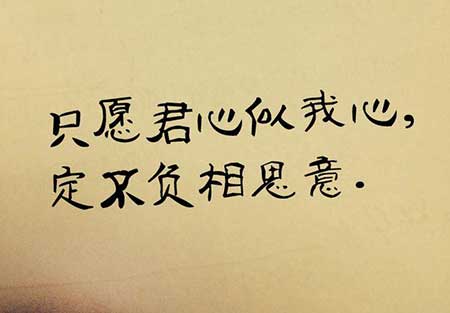 只愿君心似我心，
定不负相思意.